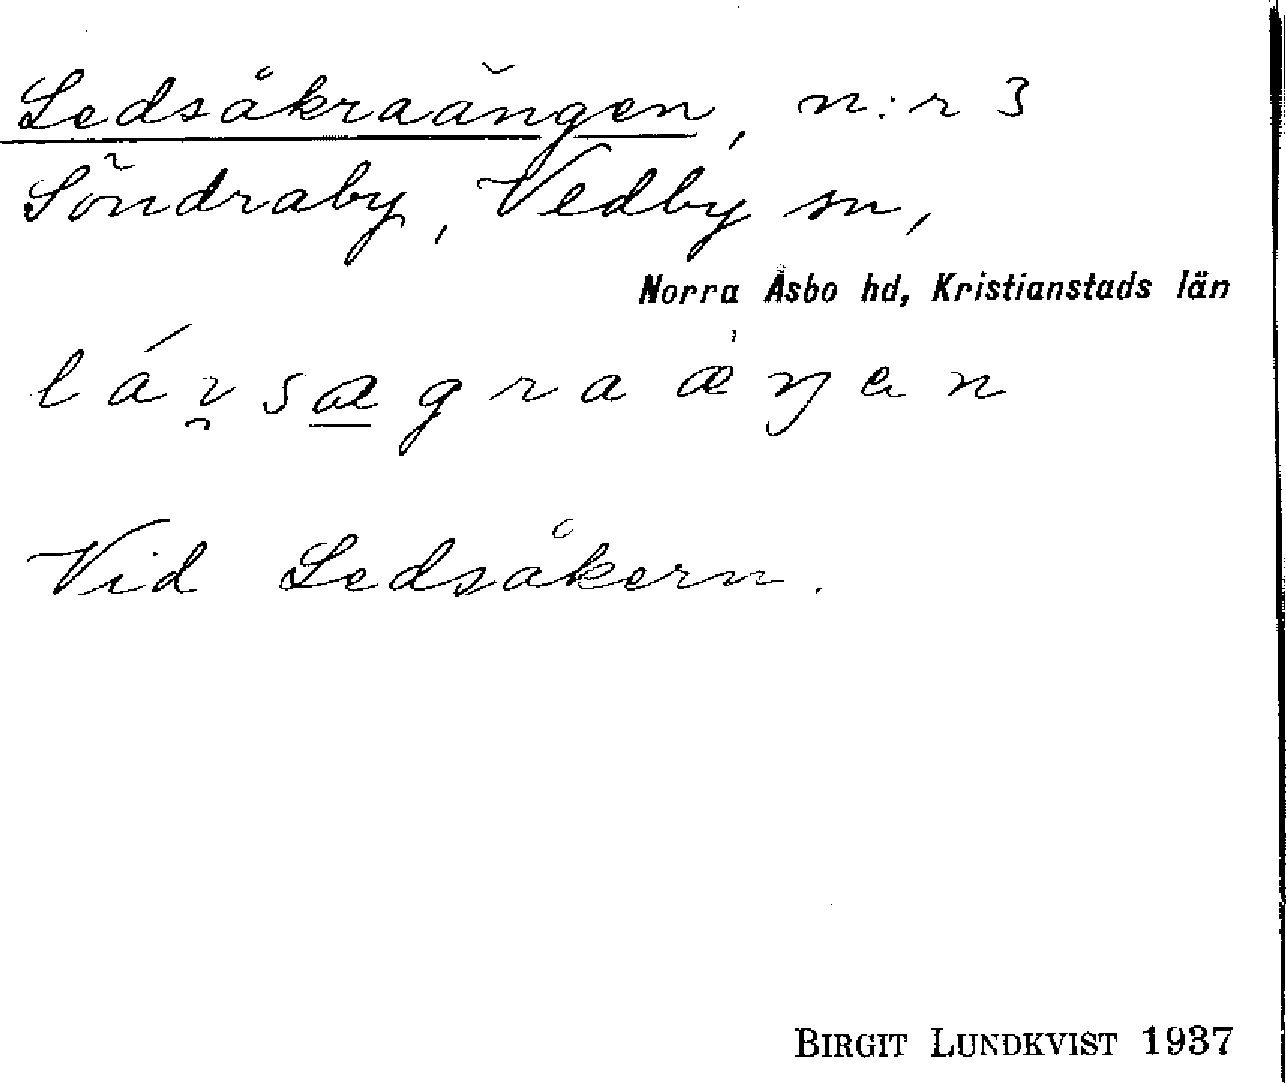 Ledsåkraängen, n:r 3
Söndraby, Vedby sn,
Norra Åsbo hd, Kristianstads län
Vid Ledsåkern.
BIRGIT LUNDKVIST 1937